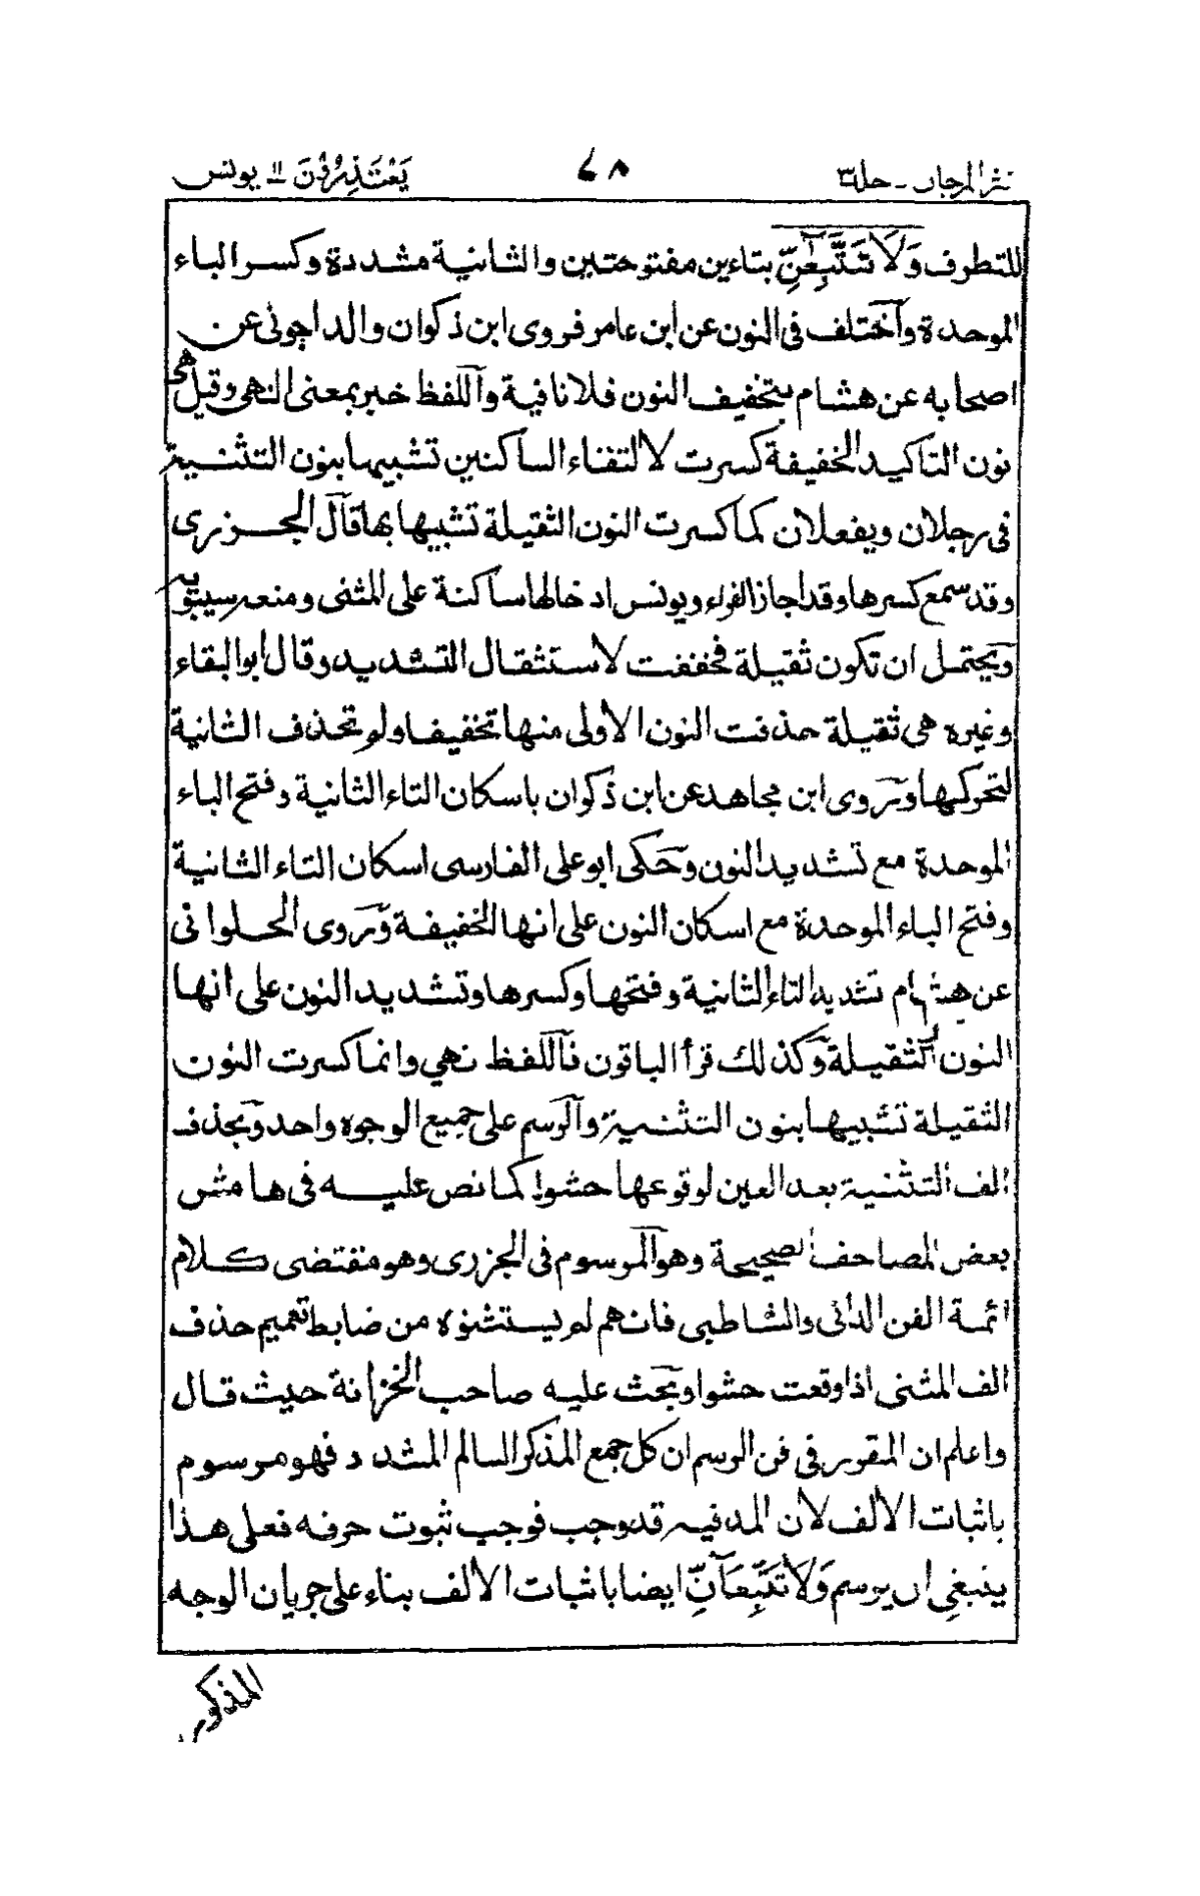 نثر المرجان - جلد ٣
٦٨
يَعْتَذِرُوْنَ ١١ يونس
للتطرف وَلَا تَتَّبِعٰۤنِّ بتاءين مفتوحتين والثانية مشددة وكسر الباء
الموحدة وآختلف فى النون عن ابن عامر فروى ابن ذكوان والداجونى عن
اصحابه عن هشام بتخفيف النون فلا نافية وآللفظ خبر بمعنى النهى وقيل هى
نون التاكيد الخفيفة كسرت لالتقاء الساكنين تشبيها بنون التثنية
فى رجلان ويفعلان كما كسرت النون الثقيلة تشبيها بها قآل الجزرى
وقد سمع كسرها وقد اجاز الفراء ويونس ادخالها ساكنة على المثنى ومنعه سيبويه
وۤيحتمل ان تكون ثقيلة فخففت لاستثقال التشديد وقال ابو البقاء
وغيره هى ثقيلة حذفت النون الأولى منها تخفيفا ولم تحذف الثانية
لتحركها وۤروى ابن مجاهد عن ابن ذكوان باسكان التاء الثانية وفتح الباء
الموحدة مع تشديد النون وۤحكى ابو على الفارسى اسكان التاء الثانية
وفتح الباء الموحدة مع اسكان النون على انها الخفيفة وۤروى الحلوانى
عن هشام تشديد التاء الثانية وفتحها وكسرها وتشديد النون على انها
النون الثقيلة وۤكذلك قرأ الباقون فآللفظ نهي وانما كسرت النون
الثقيلة تشبيها بنون التثنية وآلرسم على جميع الوجوه واحد وۤبحذف
الف التثنية بعد العين لوقوعها حشوا كما نص عليه فى هامش
بعض المصاحف الصحيحة وهو آلمرسوم فى الجزرى وهو مقتضى كلام
ائمة الفن الدانى والشاطبى فانهم لم يستثنوه من ضابط تعميم حذف
الف المثنى اذا وقعت حشوا وۤبحث عليه صاحب الخزانة حيث قال
واعلم ان المقرر فى فن الرسم ان كل جمع المذكر السالم المشدد فهو مرسوم
باثبات الألف لأن المد فيه قد وجب فوجب ثبوت حرفه فعلى هذا
ينبغى ان يرسم وَلَا تَتَّبِعَآنِّ ايضا باثبات الألف بناء على جريان الوجه
المذكور